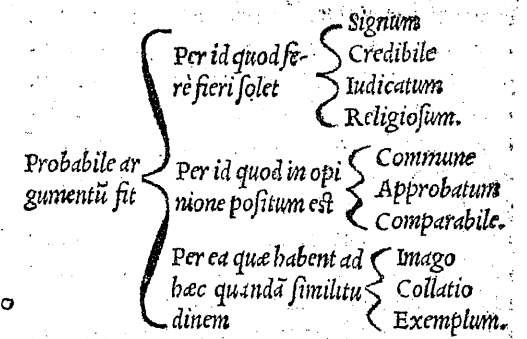 Probabile ar
gumentū fit
Per id quod fe-
rè fieri ſolet
Signum
Credibile
Iudicatum
Religioſum.
Per id quod in opi
nione poſitum eſt
Commune
Approbatum
Comparabile.
Per ea quæ habent ad
hæc quandā ſimilitu
dinem
Imago
Collatio
Exemplum.